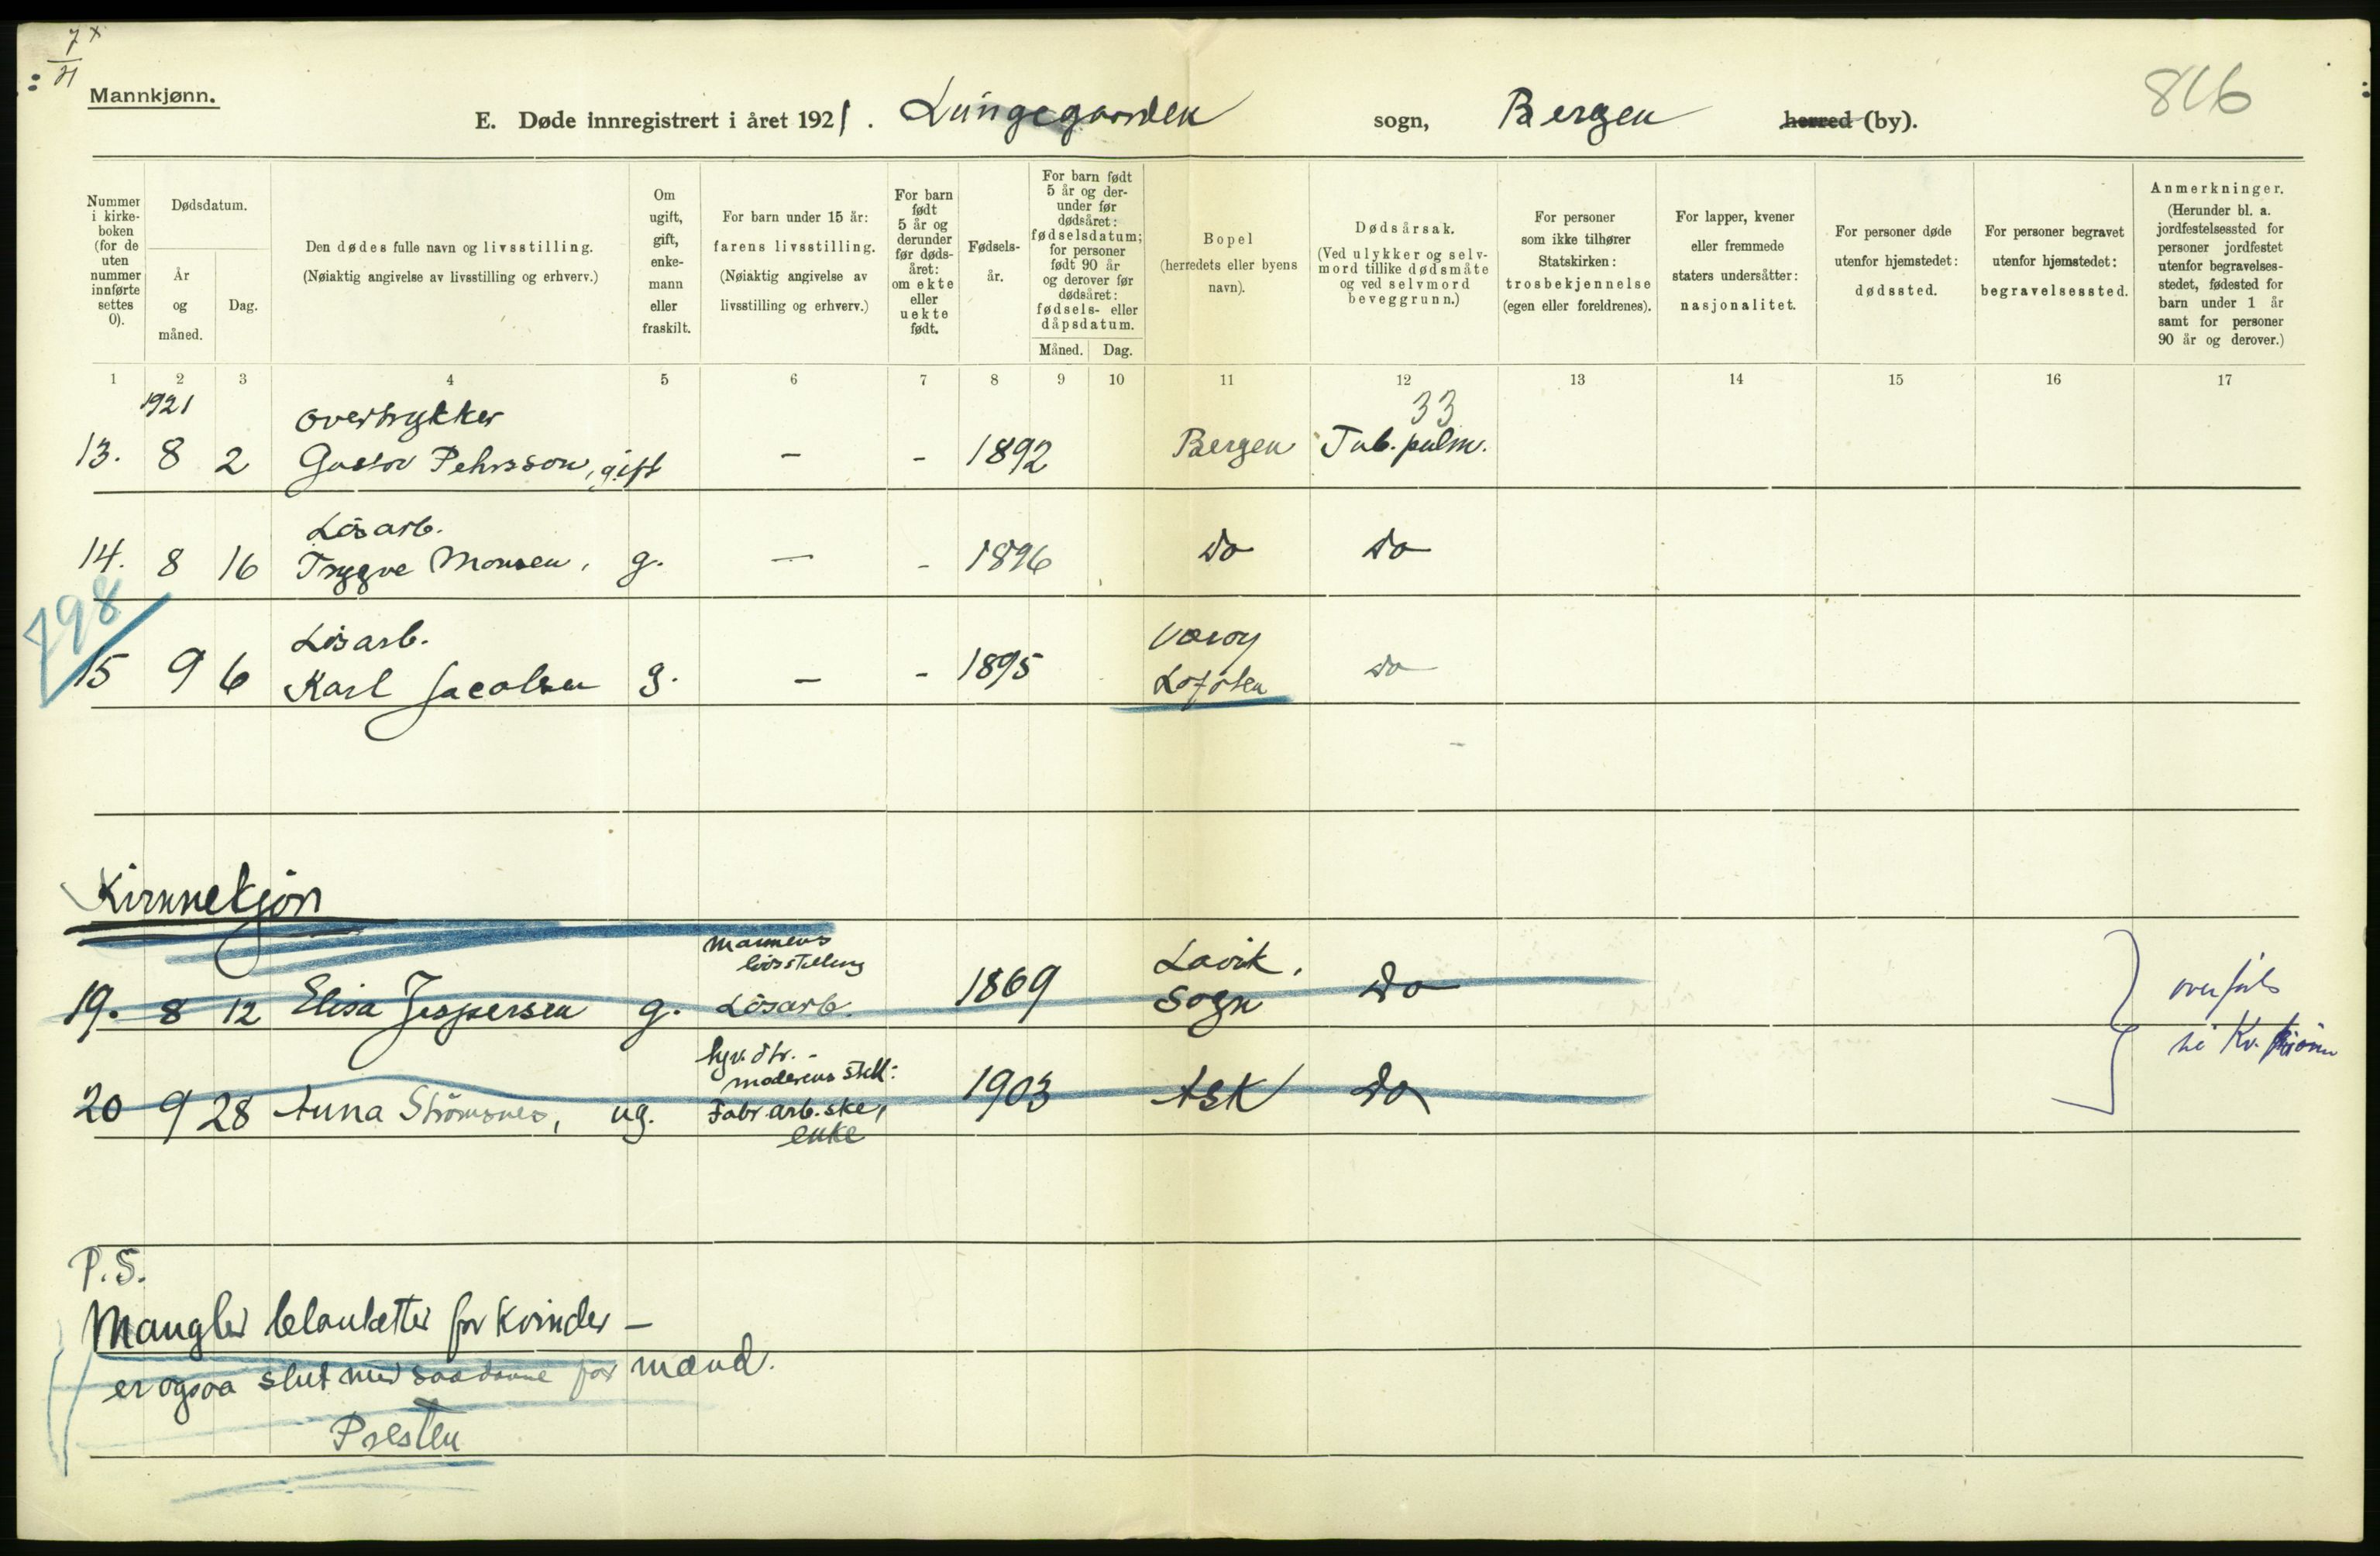 7 x
21
Mannkjønn.
E. Døde innregistrert i året 1921. Lungegaarden sogn, Bergen herred (by).
816
Nummer i kirkeboken (for de uten nummer innførte settes 0).
Dødsdatum.
År og måned.
Dag.
Den dødes fulle navn og livsstilling.
(Nøiaktig angivelse av livsstilling og erhverv.)
Om ugift, gift, enkemann eller fraskilt.
For barn under 15 år:
farens livsstilling.
(Nøiaktig angivelse av livsstilling og erhverv.)
For barn født 5 år og derunder før dødsåret: om ekte eller uekte født.
Fødselsår.
For barn født 5 år og derunder før dødsåret: fødselsdatum; for personer født 90 år og derover før dødsåret: fødsels- eller dåpsdatum.
Måned. Dag.
Bopel
(herredets eller byens navn).
Dødsårsak.
(Ved ulykker og selvmord tillike dødsmåte og ved selvmord beveggrunn.)
For personer som ikke tilhører Statskirken:
trosbekjennelse
(egen eller foreldrenes).
For lapper, kvener eller fremmede staters undersåtter:
nasjonalitet.
For personer døde utenfor hjemstedet:
dødssted.
For personer begravet utenfor hjemstedet:
begravelsessted.
Anmerkninger.
(Herunder bl. a. jordfestelsessted for personer jordfestet utenfor begravelsesstedet, fødested for barn under 1 år samt for personer 90 år og derover.)
1 2 3 4 5 6 7 8 9 10 11 12 13 14 15 16 17
1921 overtrykker 33
13. 8 2 Gustav Pehrsson, gift - - 1892 Bergen Tub. pulm.
Lösarb.
14. 8 16 Trygve Monsen, g. - - 1896 do do
798
Lösarb. Værøy
15 9 6 Karl Jacobsen g. - - 1895 Lofoten do
Kvinnekjøn
Mannens livsstilling
19. 8 12 Elisa Jespersen g. Lösarb. 1869 Lavik, Sogn do
moderens still:
20 9 28 Anna Strömsnes, ug. Fabr.arb.ske, enke 1903 Ask do
overført
til Kv. kjönn
P.S.
Mangler blanketter for Kvinder -
er ogsaa slut med saadanne for mænd.
Presten